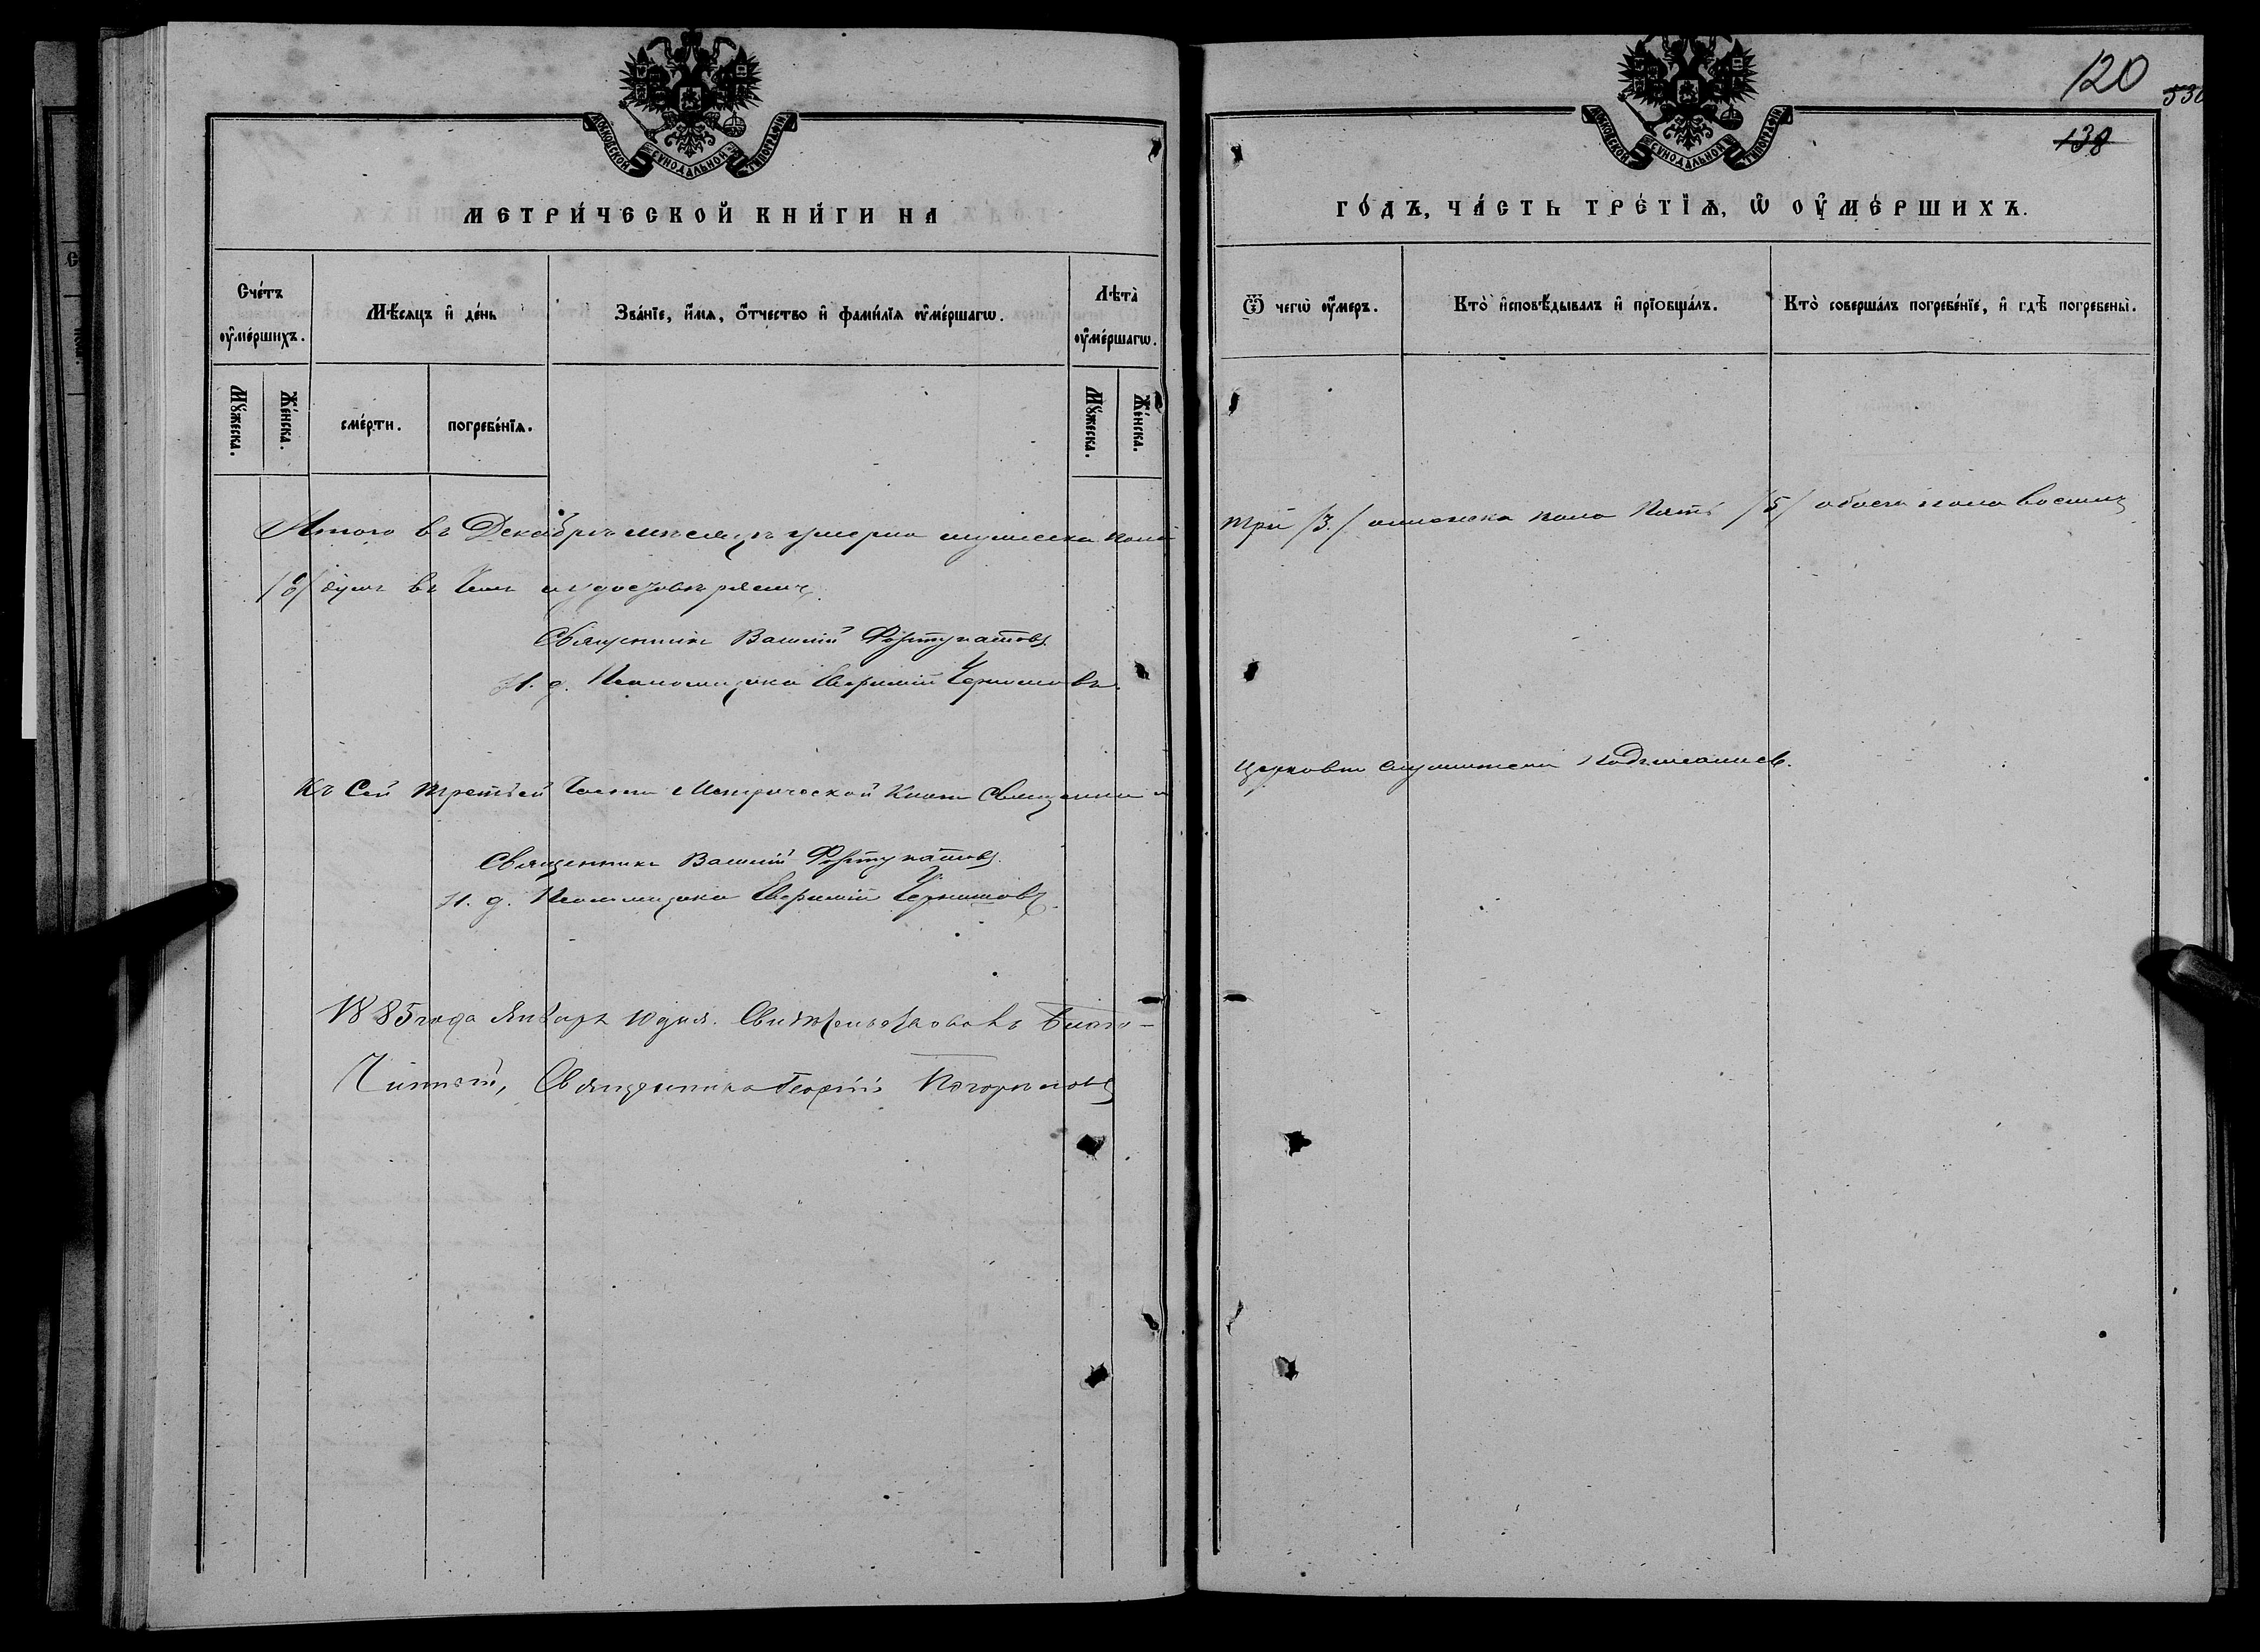 МОСКОВСКОЙ СѴНОДАЛЬНОЙ ТИПОГРАФІИ
МЕТРИ́ЧЕСКОЙ КНИ́ГИ НА
Сче́тъ ᲂу҆ме́ршихъ.
Мѣ́сяцъ и҆ де́нь
Зва́нїе, и҆́мѧ, ѻ҆́тчество и҆ фами́лїѧ ᲂу҆ме́ршагѡ.
Лѣта̀ ᲂу҆ме́ршагѡ.
Мꙋ́жеска.
Же́нска.
сме́рти.
погребе́нїѧ.
Мꙋ́жеска.
Же́нска.
Итого въ Декабрѣ мѣсяцѣ умерло мужеска пола
/8/ душъ въ чемъ и удостовѣряемъ
Священникъ Василій Фортунатовъ
И. д. Псаломщика Евфимій
Къ сей третьей части Метрической Книги Священно и
Священникъ Василій Фортунатовъ
И. д. Псаломщика Евфимій
1885 года Января 10 дня. Свидѣтельствовалъ Благо-
чинный, Священникъ Георгій
120
530
138
МОСКОВСКОЙ СѴНОДАЛЬНОЙ ТИПОГРАФІИ
ГО́ДЪ, ЧА́СТЬ ТРЕ́ТЇѦ, Ѡ҆ ОУ҆МЕ́РШИХЪ.
Ѿ чегѡ̀ ᲂу҆́меръ.
Кто̀ и҆сповѣ́дывалъ и҆ прїобща́лъ.
Кто̀ соверша́лъ погребе́нїе, и҆ гдѣ̀ погребены̀.
три /3/ а женска пола пять /5/ обоего пола восемь
церковно служители подписались.